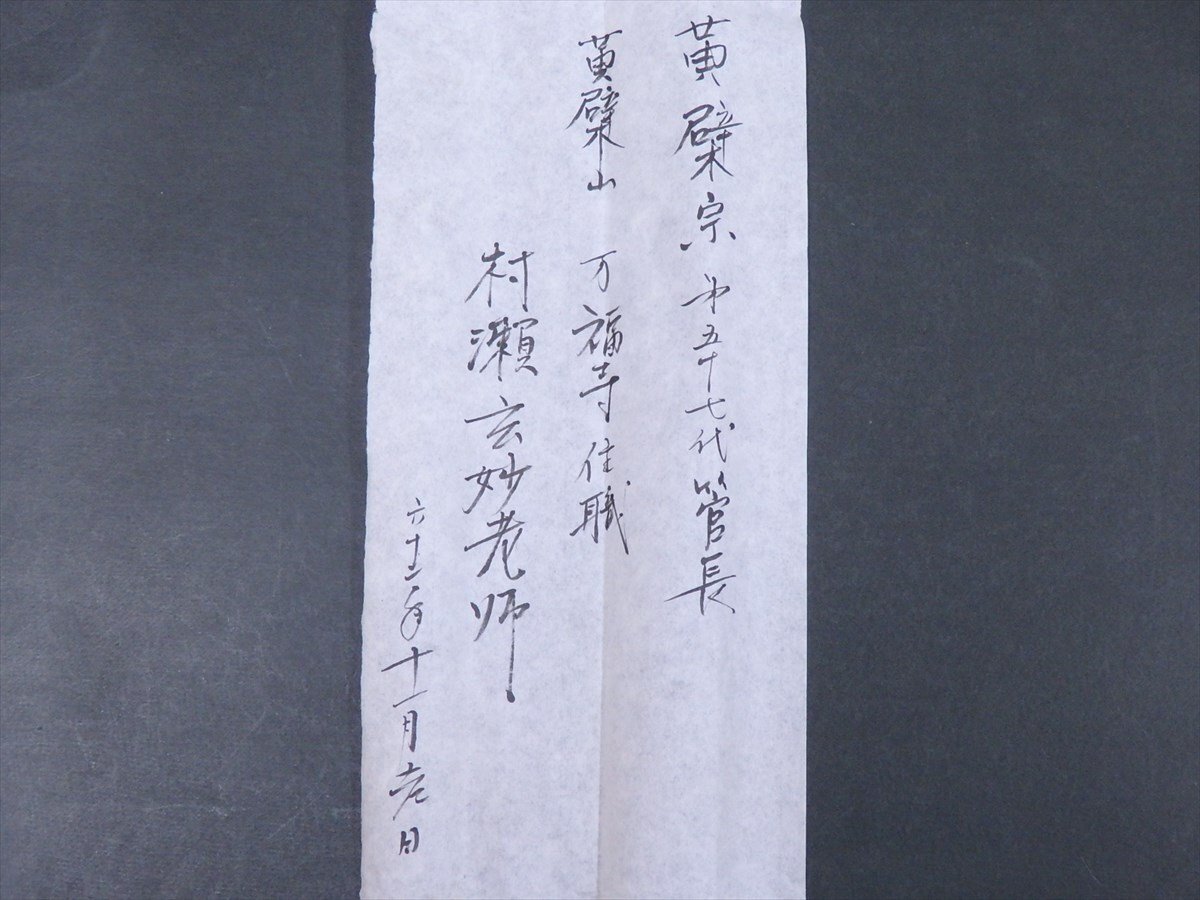 黄檗宗 第五十七代管長
黄檗山 万福寺 住職
村瀬玄妙老師
六十二年十一月吉日